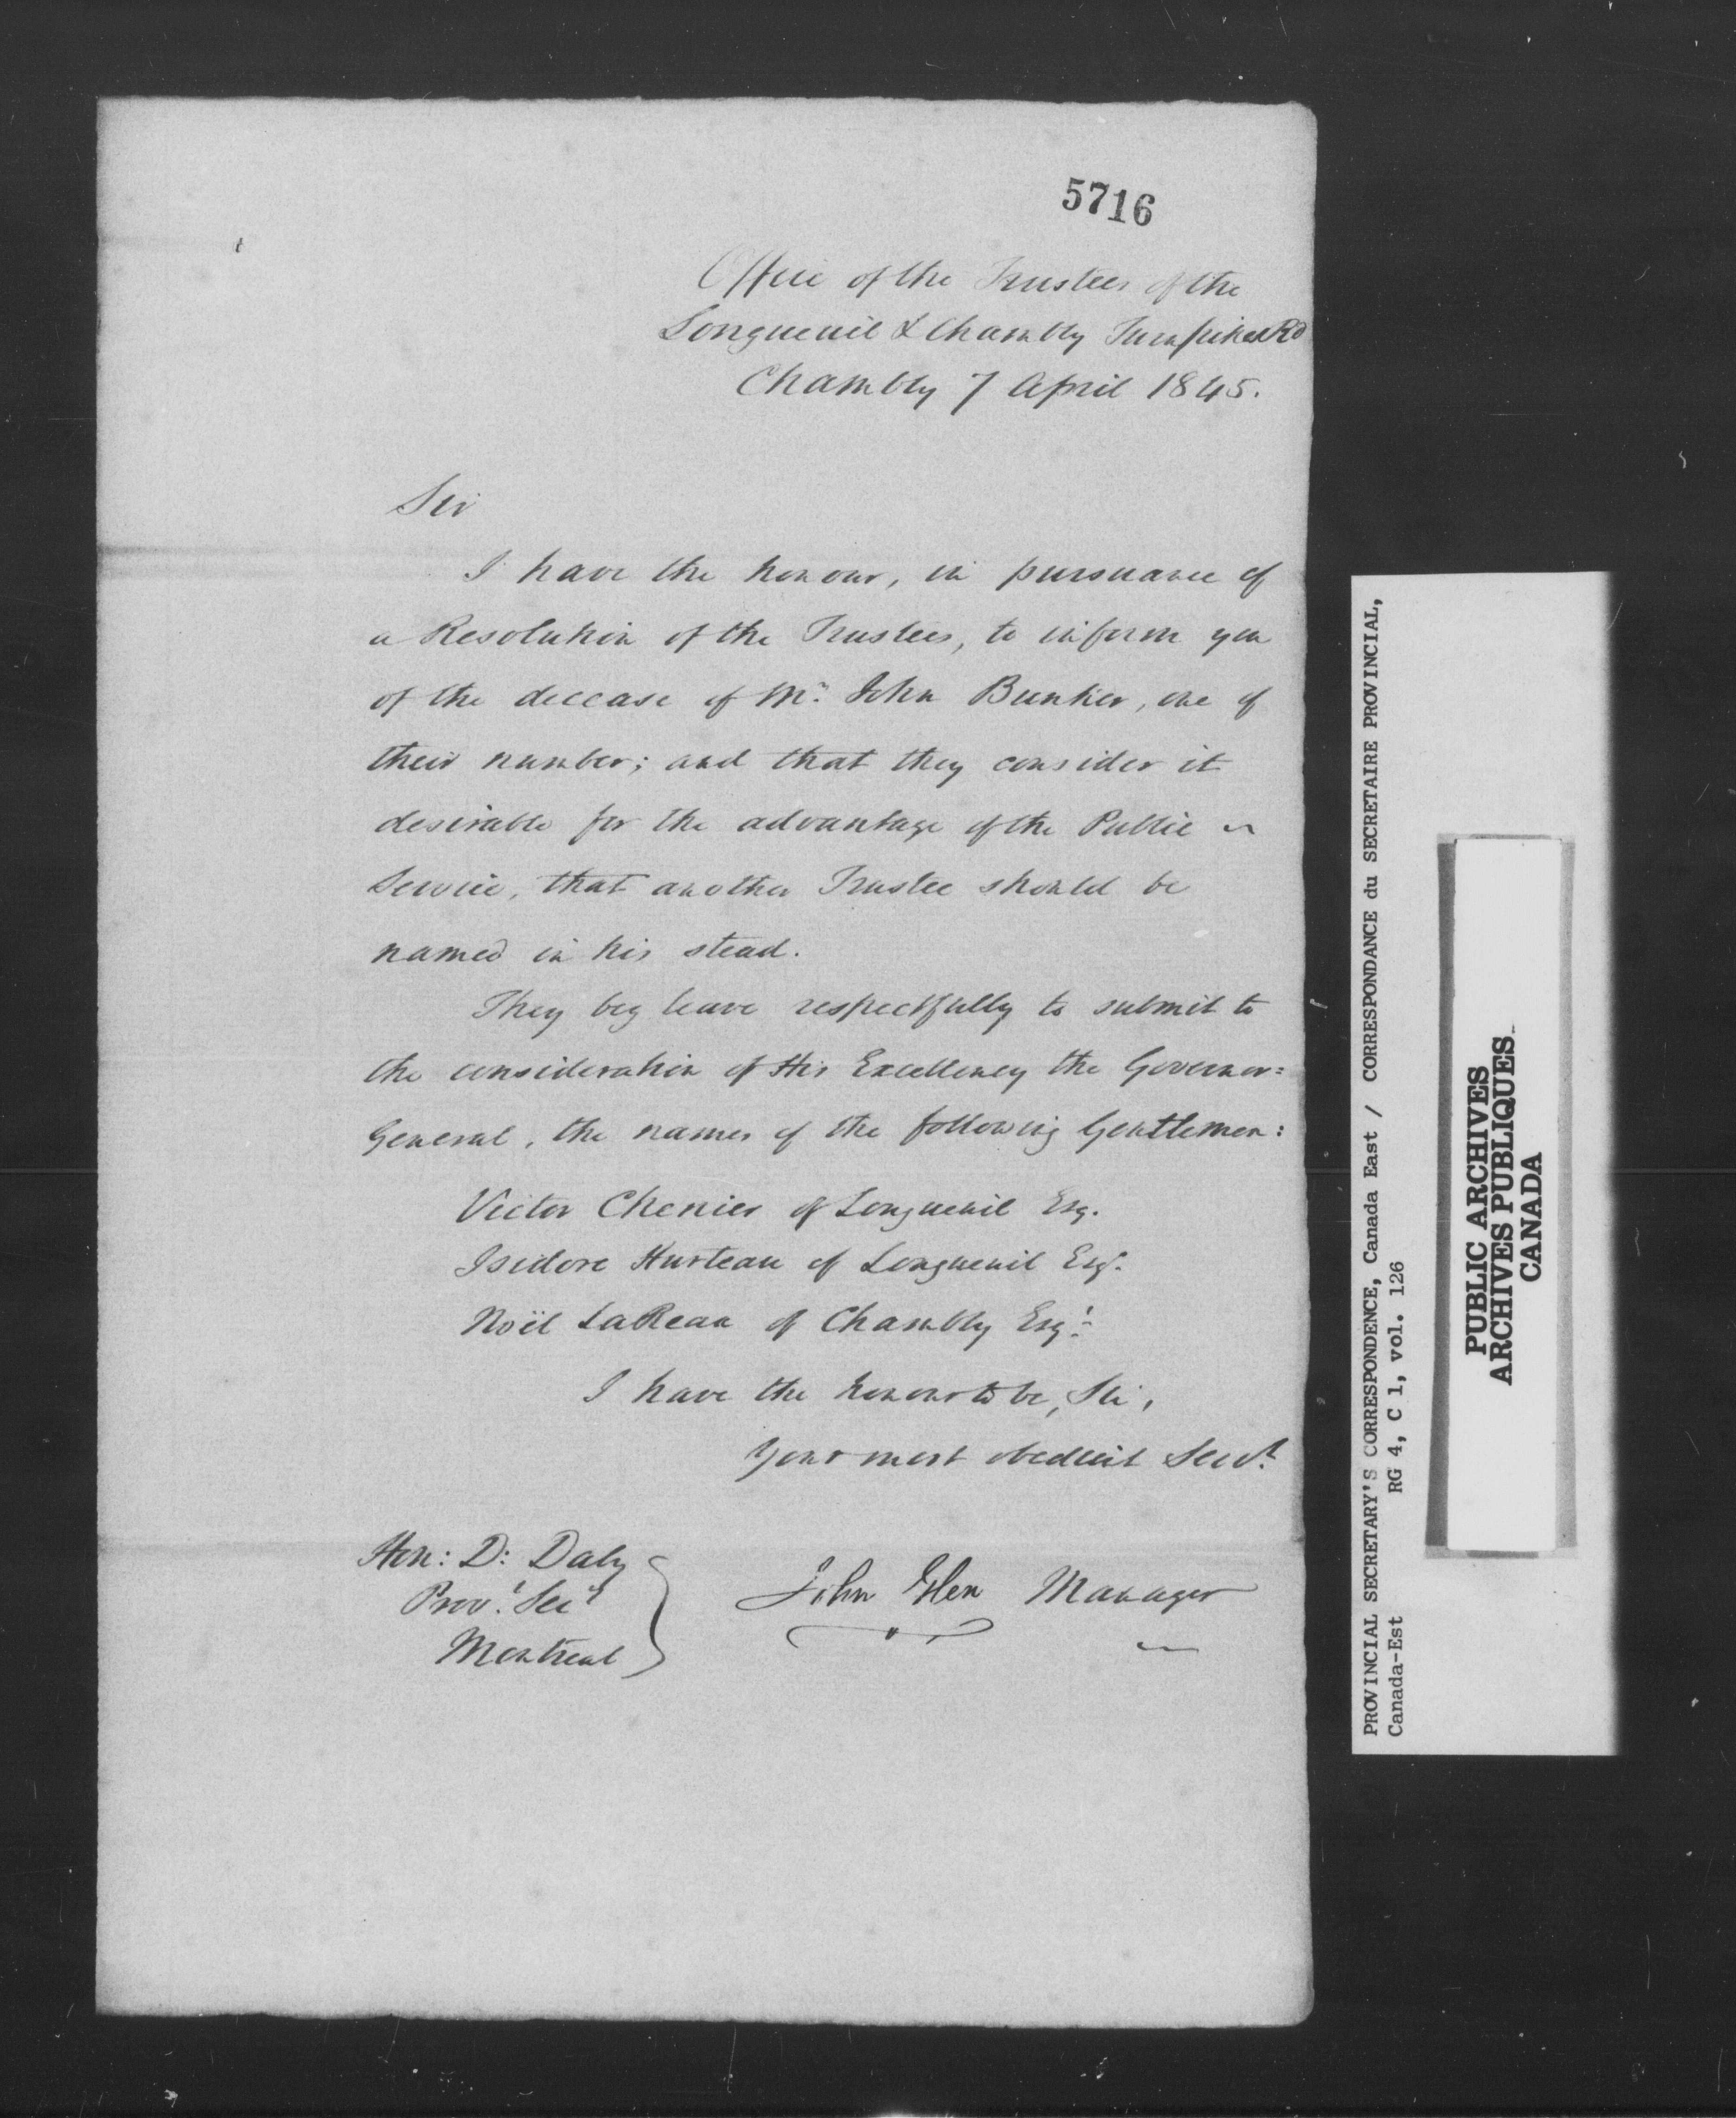 5716
Office of the Trustees of the
Longueuil & Chambly Turnpike Rd
Chambly 7 April 1845.
Sir
I have the honour, in pursuance of
a Resolution of the Trustees, to inform you
of the decease of Mr. John Bunker, one of
their number; and that they consider it
desirable for the advantage of the Public
Service, that another Trustee should be
named in his stead.
They beg leave respectfully to submit to
the consideration of His Excellency the Governor=
General, the names of the following Gentlemen:
Victor Chenier of Longueuil Esq.
Isidore Hurteau of Longueuil Esqr.
Noël LaReau of Chambly Esqr.
I have the honour to be, Sir,
Your most obedient Servt.
Hon: D: Daly
Provl. Secy
Montreal
John Glen Manager
PROVINCIAL SECRETARY'S CORRESPONDENCE, Canada East / CORRESPONDANCE du SECRETAIRE PROVINCIAL,
Canada-Est RG 4, C 1, vol. 126
PUBLIC ARCHIVES
ARCHIVES PUBLIQUES
CANADA